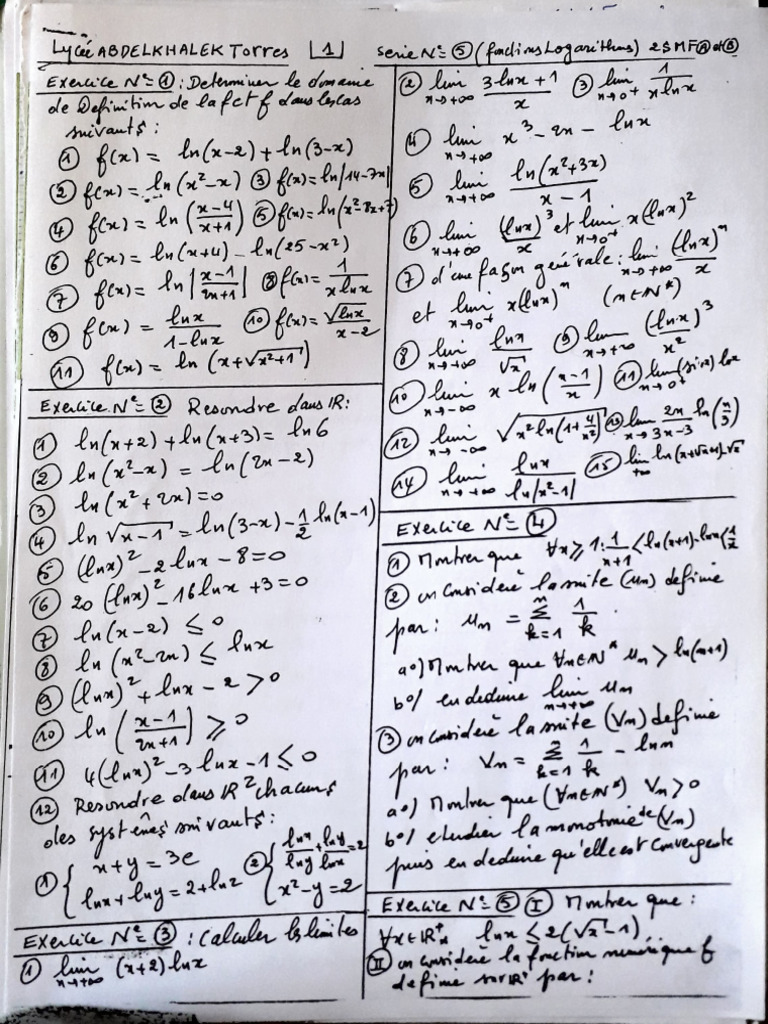 Lycée ABDELKHALEK Torres [1] serie N°= ⑤ (fonctions Logarithms) 2SMF Ⓐ et Ⓑ
Exercice N°= ① : Determiner le domaine
de Definition de la fct f dans les cas
suivants :
① f(x) = ln(x-2) + ln(3-x)
② f(x) = ln(x²-x) ③ f(x) = ln|14-7x|
④ f(x) = ln((x-4)/(x+1)) ⑤ f(x) = ln(x²-8x+7)
⑥ f(x) = ln(x+4) - ln(25-x²)
⑦ f(x) = ln|(x-1)/(2x+1)| ⑧ f(x) = 1/(x lnx)
⑨ f(x) = lnx/(1-lnx) ⑩ f(x) = √(lnx)/(x-2)
⑪ f(x) = ln(x+√(x²+1))
Exercice N°= ② Resoudre dans IR :
① ln(x+2) + ln(x+3) = ln6
② ln(x²-x) = ln(2x-2)
③ ln(x²+2x) = 0
④ ln√(x-1) = ln(3-x) - 1/2 ln(x-1)
⑤ (lnx)² - 2lnx - 8 = 0
⑥ 20(lnx)² - 16lnx + 3 = 0
⑦ ln(x-2) ≤ 0
⑧ ln(x²-2x) ≤ lnx
⑨ (lnx)² + lnx - 2 > 0
⑩ ln((x-1)/(2x+1)) ≥ 0
⑪ 4(lnx)² - 3lnx - 1 ≤ 0
⑫ Resoudre dans IR² chacuns
des systêmes suivants :
① { x+y = 3e
lnx + lny = 2 + ln2
② { lnx/lny + lny/lnx = 2
x² - y = 2
Exercice N°= ③ : Calculer les limites
① lim x→+∞ (x+2) lnx
② lim x→+∞ (3lnx+1)/x ③ lim x→0⁺ 1/(x lnx)
④ lim x→+∞ x³ - 2x - lnx
⑤ lim x→+∞ ln(x²+3x)/(x-1)
⑥ lim x→+∞ (lnx)³/x et lim x→0⁺ x(lnx)²
⑦ d'une façon générale : lim x→+∞ (lnx)ⁿ/x
et lim x→0⁺ x(lnx)ⁿ (n∈IN*)
⑧ lim x→+∞ lnx/√x ⑨ lim x→+∞ (lnx)³/x²
⑩ lim x→-∞ x ln((x-1)/x) ⑪ lim x→0⁺ (sinx) lnx
⑫ lim x→-∞ √(x² ln(1+4/x²)) ⑬ lim x→3 2x/(x-3) ln(x/3)
⑭ lim x→+∞ lnx/ln|x²-1| ⑮ lim +∞ ln(x+√(x+1))-√x
Exercice N°= ④
① Montrer que ∀x≥1 : 1/(x+1) < ln(x+1)-lnx < 1/x
② on considère la suite (un) definie
par : un = Σ k=1 n 1/k .
a°/ Montrer que ∀n∈IN* un > ln(n+1)
b°/ en deduire lim n→+∞ un
③ on considère la suite (Vn) definie
par : Vn = Σ k=1 n 1/k - lnn
a°/ Montrer que (∀n∈IN*) Vn > 0
b°/ etudier la monotonie de (Vn)
puis en deduire qu'elle est convergente
Exercice N°= ⑤ Ⓘ Montrer que :
∀x∈IR*₊ lnx ≤ 2(√x - 1)
Ⅱ on considère la fonction numérique f
definie sur IR⁺ par :